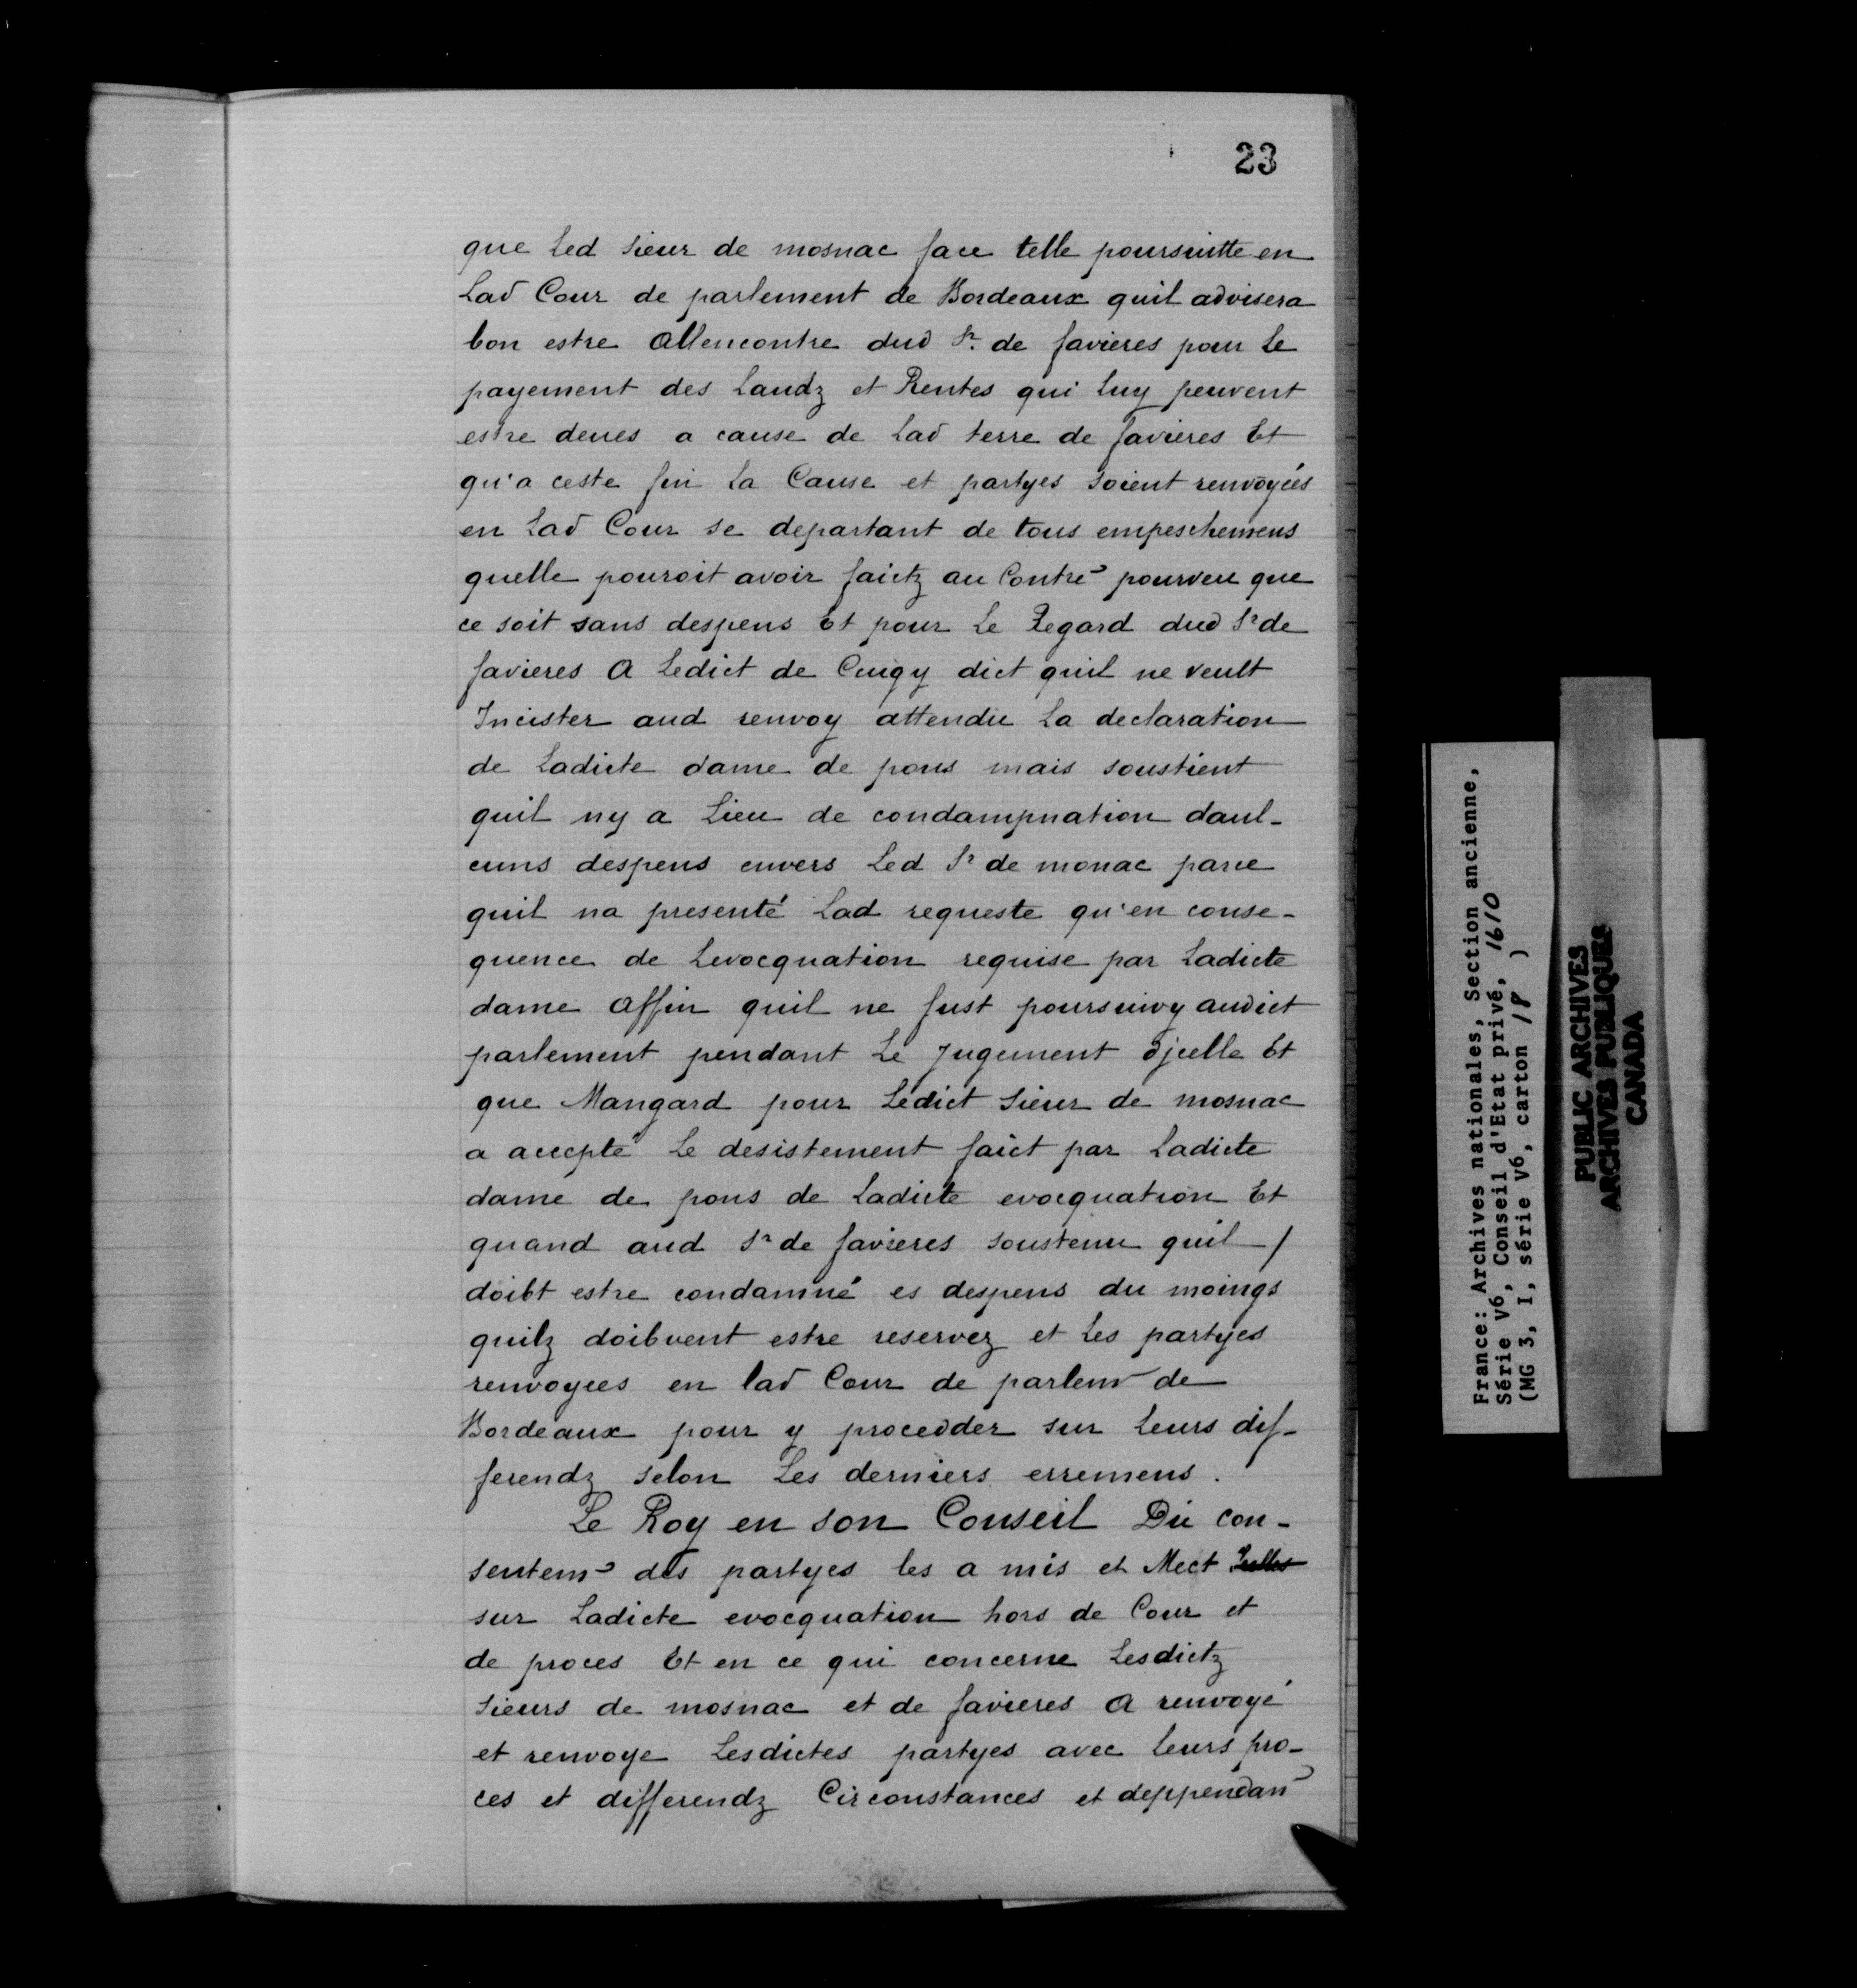 23
que Led sieur de mosnac face telle poursuitte en
Lad Cour de parlement de Bordeaux quil advisera
bon estre Allencontre dud Sr. de favieres pour Le
payement des Laudz et Rentes qui luy peuvent
estre deues a cause de Lad terre de favieres Et
qu'a ceste fin La Cause et partyes soient renvoyées
en Lad Cour se departant de tous empeschemens
quelle pouroit avoir faictz au Contre pourveu que
ce soit sans despens Et pour Le Regard dud Sr de
favieres A Ledict de Cugy dict quil ne veult
Incister aud renvoy attendu La declaration
de Ladicte dame de pons mais soustient
quil ny a Lieu de condampnation daul-
cuns despens envers Led Sr de monac parce
quil na presenté Lad requeste qu'en conse-
quence de Levocquation requise par Ladicte
dame Affin quil ne fust poursuivy audict
parlement pendant Le Jugement djcelle Et
que Mangard pour Ledict sieur de mosnac
a accepté Le desistement faict par Ladicte
dame de pons de Ladicte evocquation Et
quand aud Sr de favieres soustenu quil /
doibt estre condamné es despens du moings
quilz doibvent estre reservez et Les partyes
renvoyees en lad Cour de parlem de
Bordeaux pour y procedder sur Leurs dif-
ferendz selon Les derniers erremens.
Le Roy en son Conseil Du con-
sentem des partyes les a mis et Mect
sur Ladicte evocquation hors de Cour et
de proces Et en ce qui concerne Lesdictz
sieurs de mosnac et de favieres A renvoyé
et renvoye Lesdictes partyes avec Leurs pro-
ces et differendz Circonstances et deppendan
France: Archives nationales, Section ancienne,
Série V6, Conseil d'Etat privé, 1610
(MG 3, I, série V6, carton 18 )
PUBLIC ARCHIVES
ARCHIVES PUBLIQUES
CANADA